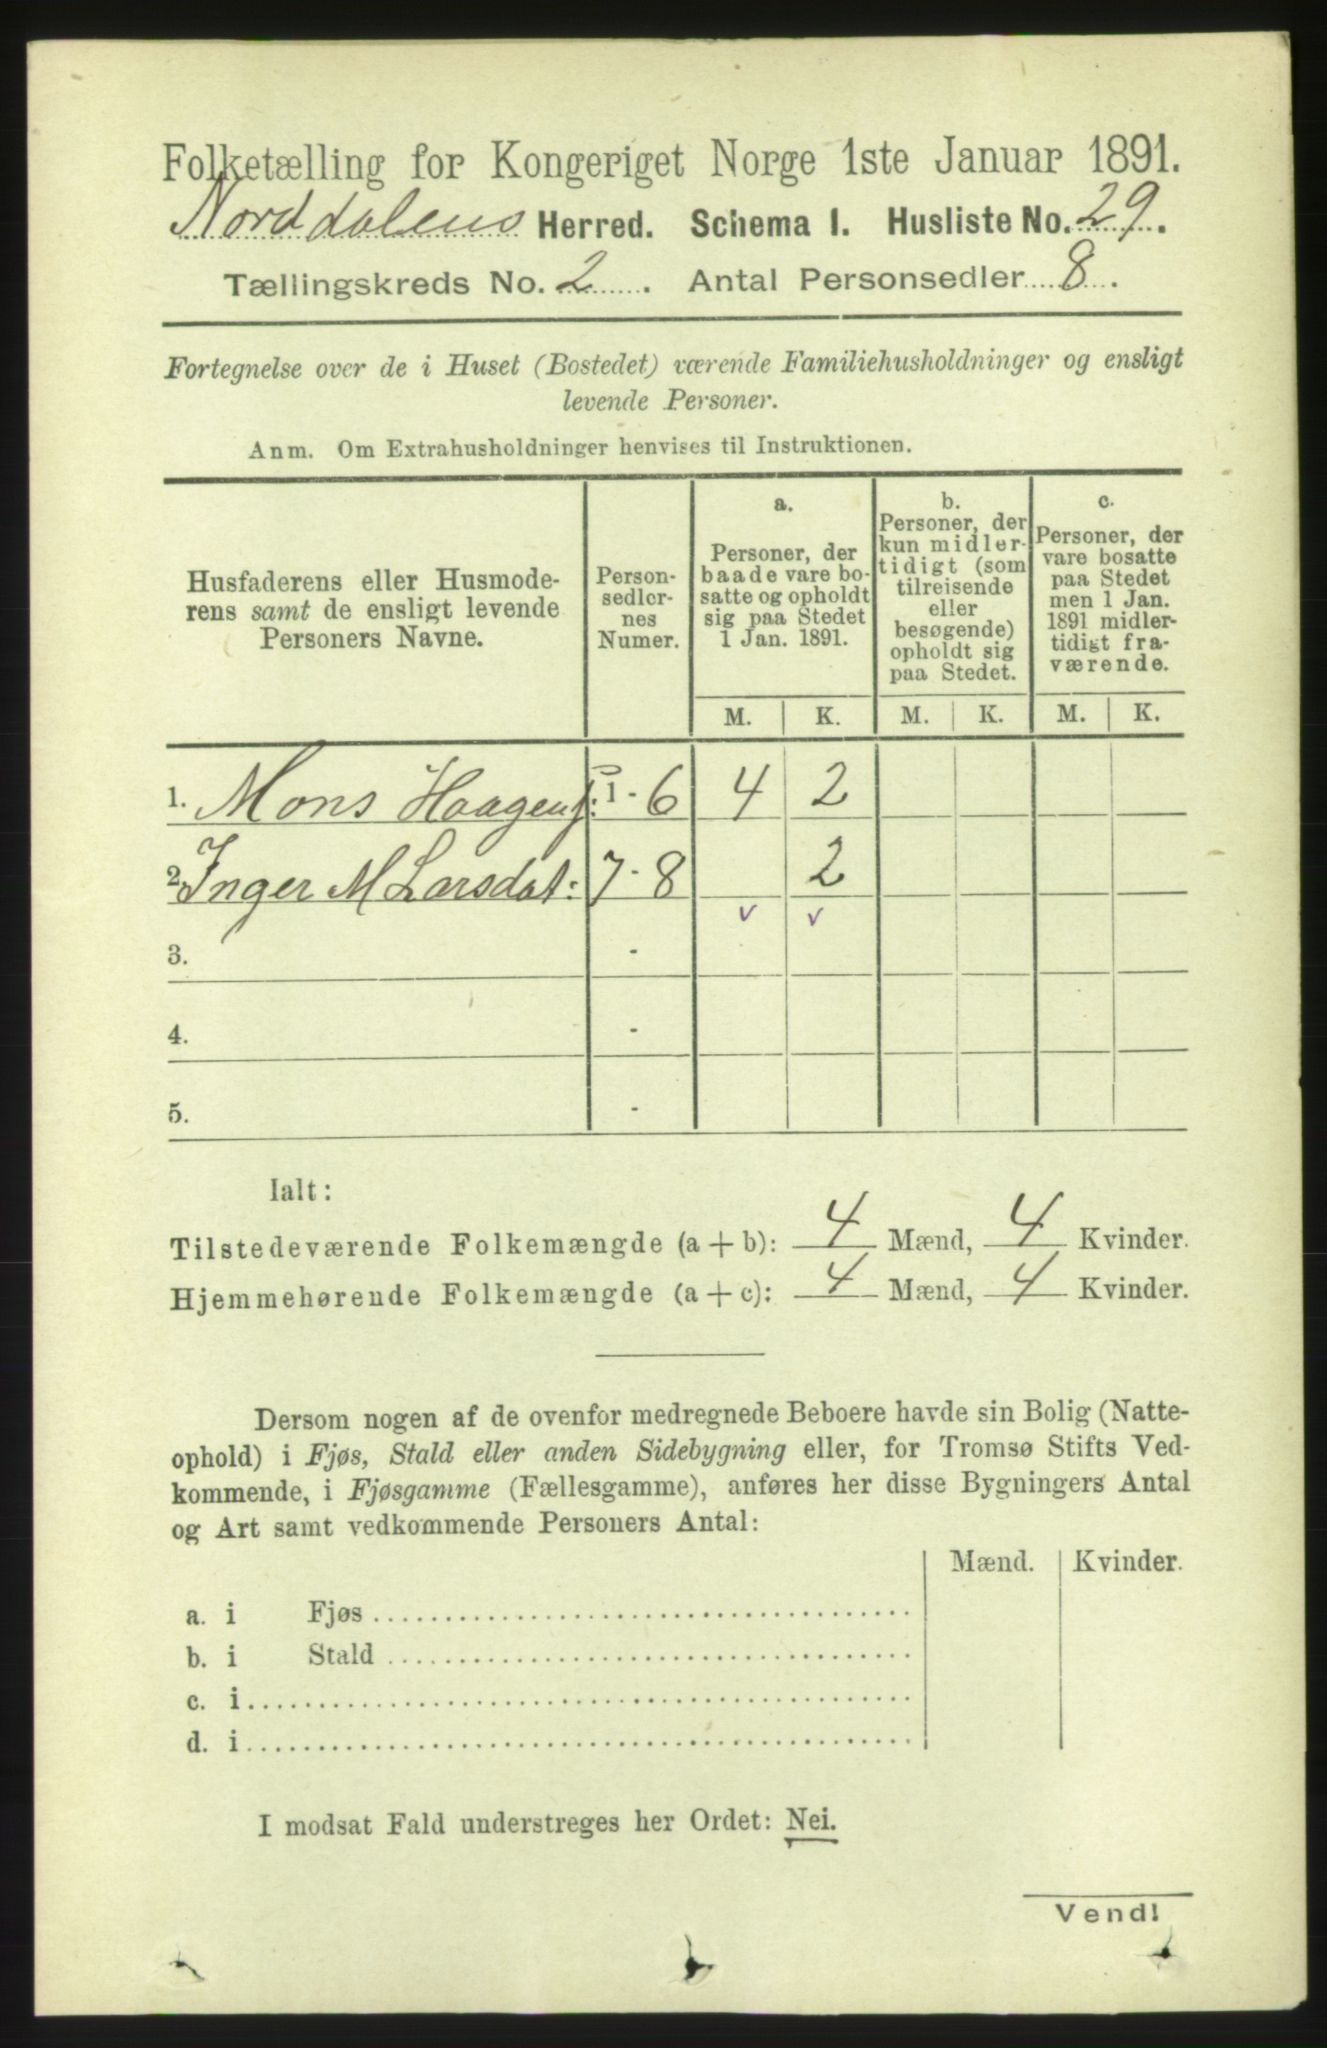 Folketælling for Kongeriget Norge 1ste Januar 1891.
Norddalens Herred. Schema I. Husliste No. 29.
Tællingskreds No. 2. Antal Personsedler 8.
Fortegnelse over de i Huset (Bostedet) værende Familiehusholdninger og ensligt
levende Personer.
Anm. Om Extrahusholdninger henvises til Instruktionen.
Husfaderens eller Husmode-
rens samt de ensligt levende
Personers Navne.
Person-
sedler-
nes
Numer.
a.
Personer, der
baade vare bo-
satte og opholdt
sig paa Stedet
1 Jan. 1891.
b.
Personer, der
kun midler-
tidigt (som
tilreisende
eller
besøgende)
opholdt sig
paa Stedet.
c.
Personer, der
vare bosatte
paa Stedet
men 1 Jan.
1891 midler-
tidigt fra-
værende.
M. K. M. K. M. K.
1. Mons Haagens: 1 - 6 4 2
2. Inger M Larsdat: 7 - 8 2
v v
3. -
4. -
5. -
Ialt:
Tilstedeværende Folkemængde (a + b): 4 Mænd, 4 Kvinder.
Hjemmehørende Folkemængde (a + c): 4 Mænd, 4 Kvinder.
Dersom nogen af de ovenfor medregnede Beboere havde sin Bolig (Natte-
ophold) i Fjøs, Stald eller anden Sidebygning eller, for Tromsø Stifts Ved-
kommende, i Fjøsgamme (Fællesgamme), anføres her disse Bygningers Antal
og Art samt vedkommende Personers Antal:
Mænd. Kvinder.
a. i Fjøs
b. i Stald
c. i
d. i
I modsat Fald understreges her Ordet: Nei.
Vend!